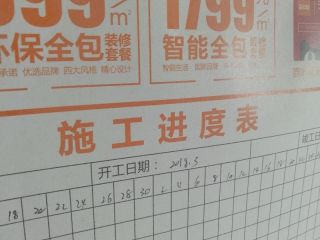 99 /m²
1799 /m²
环保全包 装修套餐
智能全包 装修套餐
承诺 优选品牌 四大风格 精心设计
智能生活 国际品牌
施工进度表
开工日期： 2018.5
竣工日
18 20 22 24 26 28 30 2 4 6 8 10 12 14 16 18